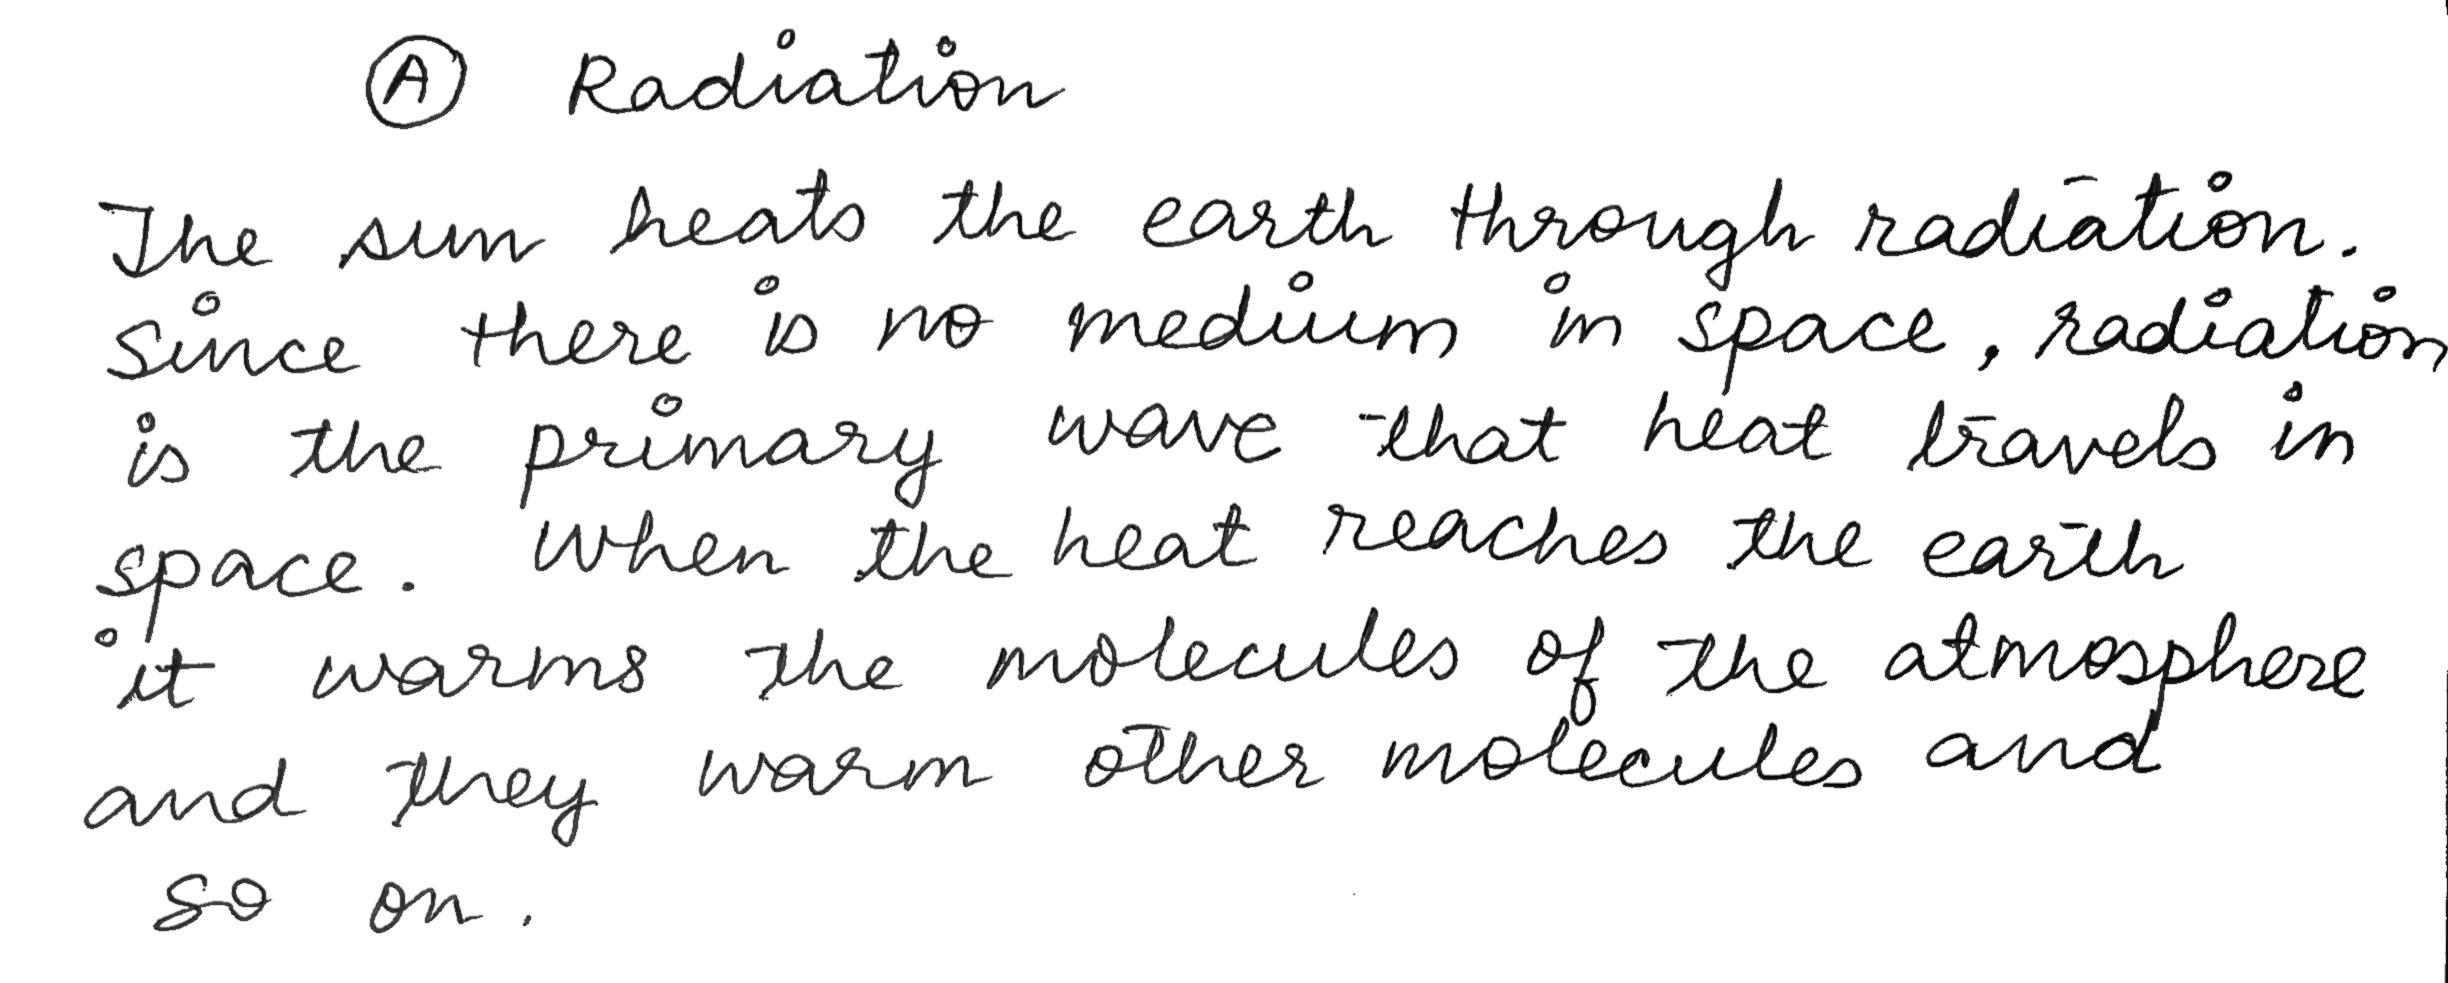 Ⓐ Radiation
The sun heats the earth through radiation.
Since there is no medium in space, radiation
is the primary wave that heat travels in
space. When the heat reaches the earth
it warms the molecules of the atmosphere
and they warm other molecules and
so on.